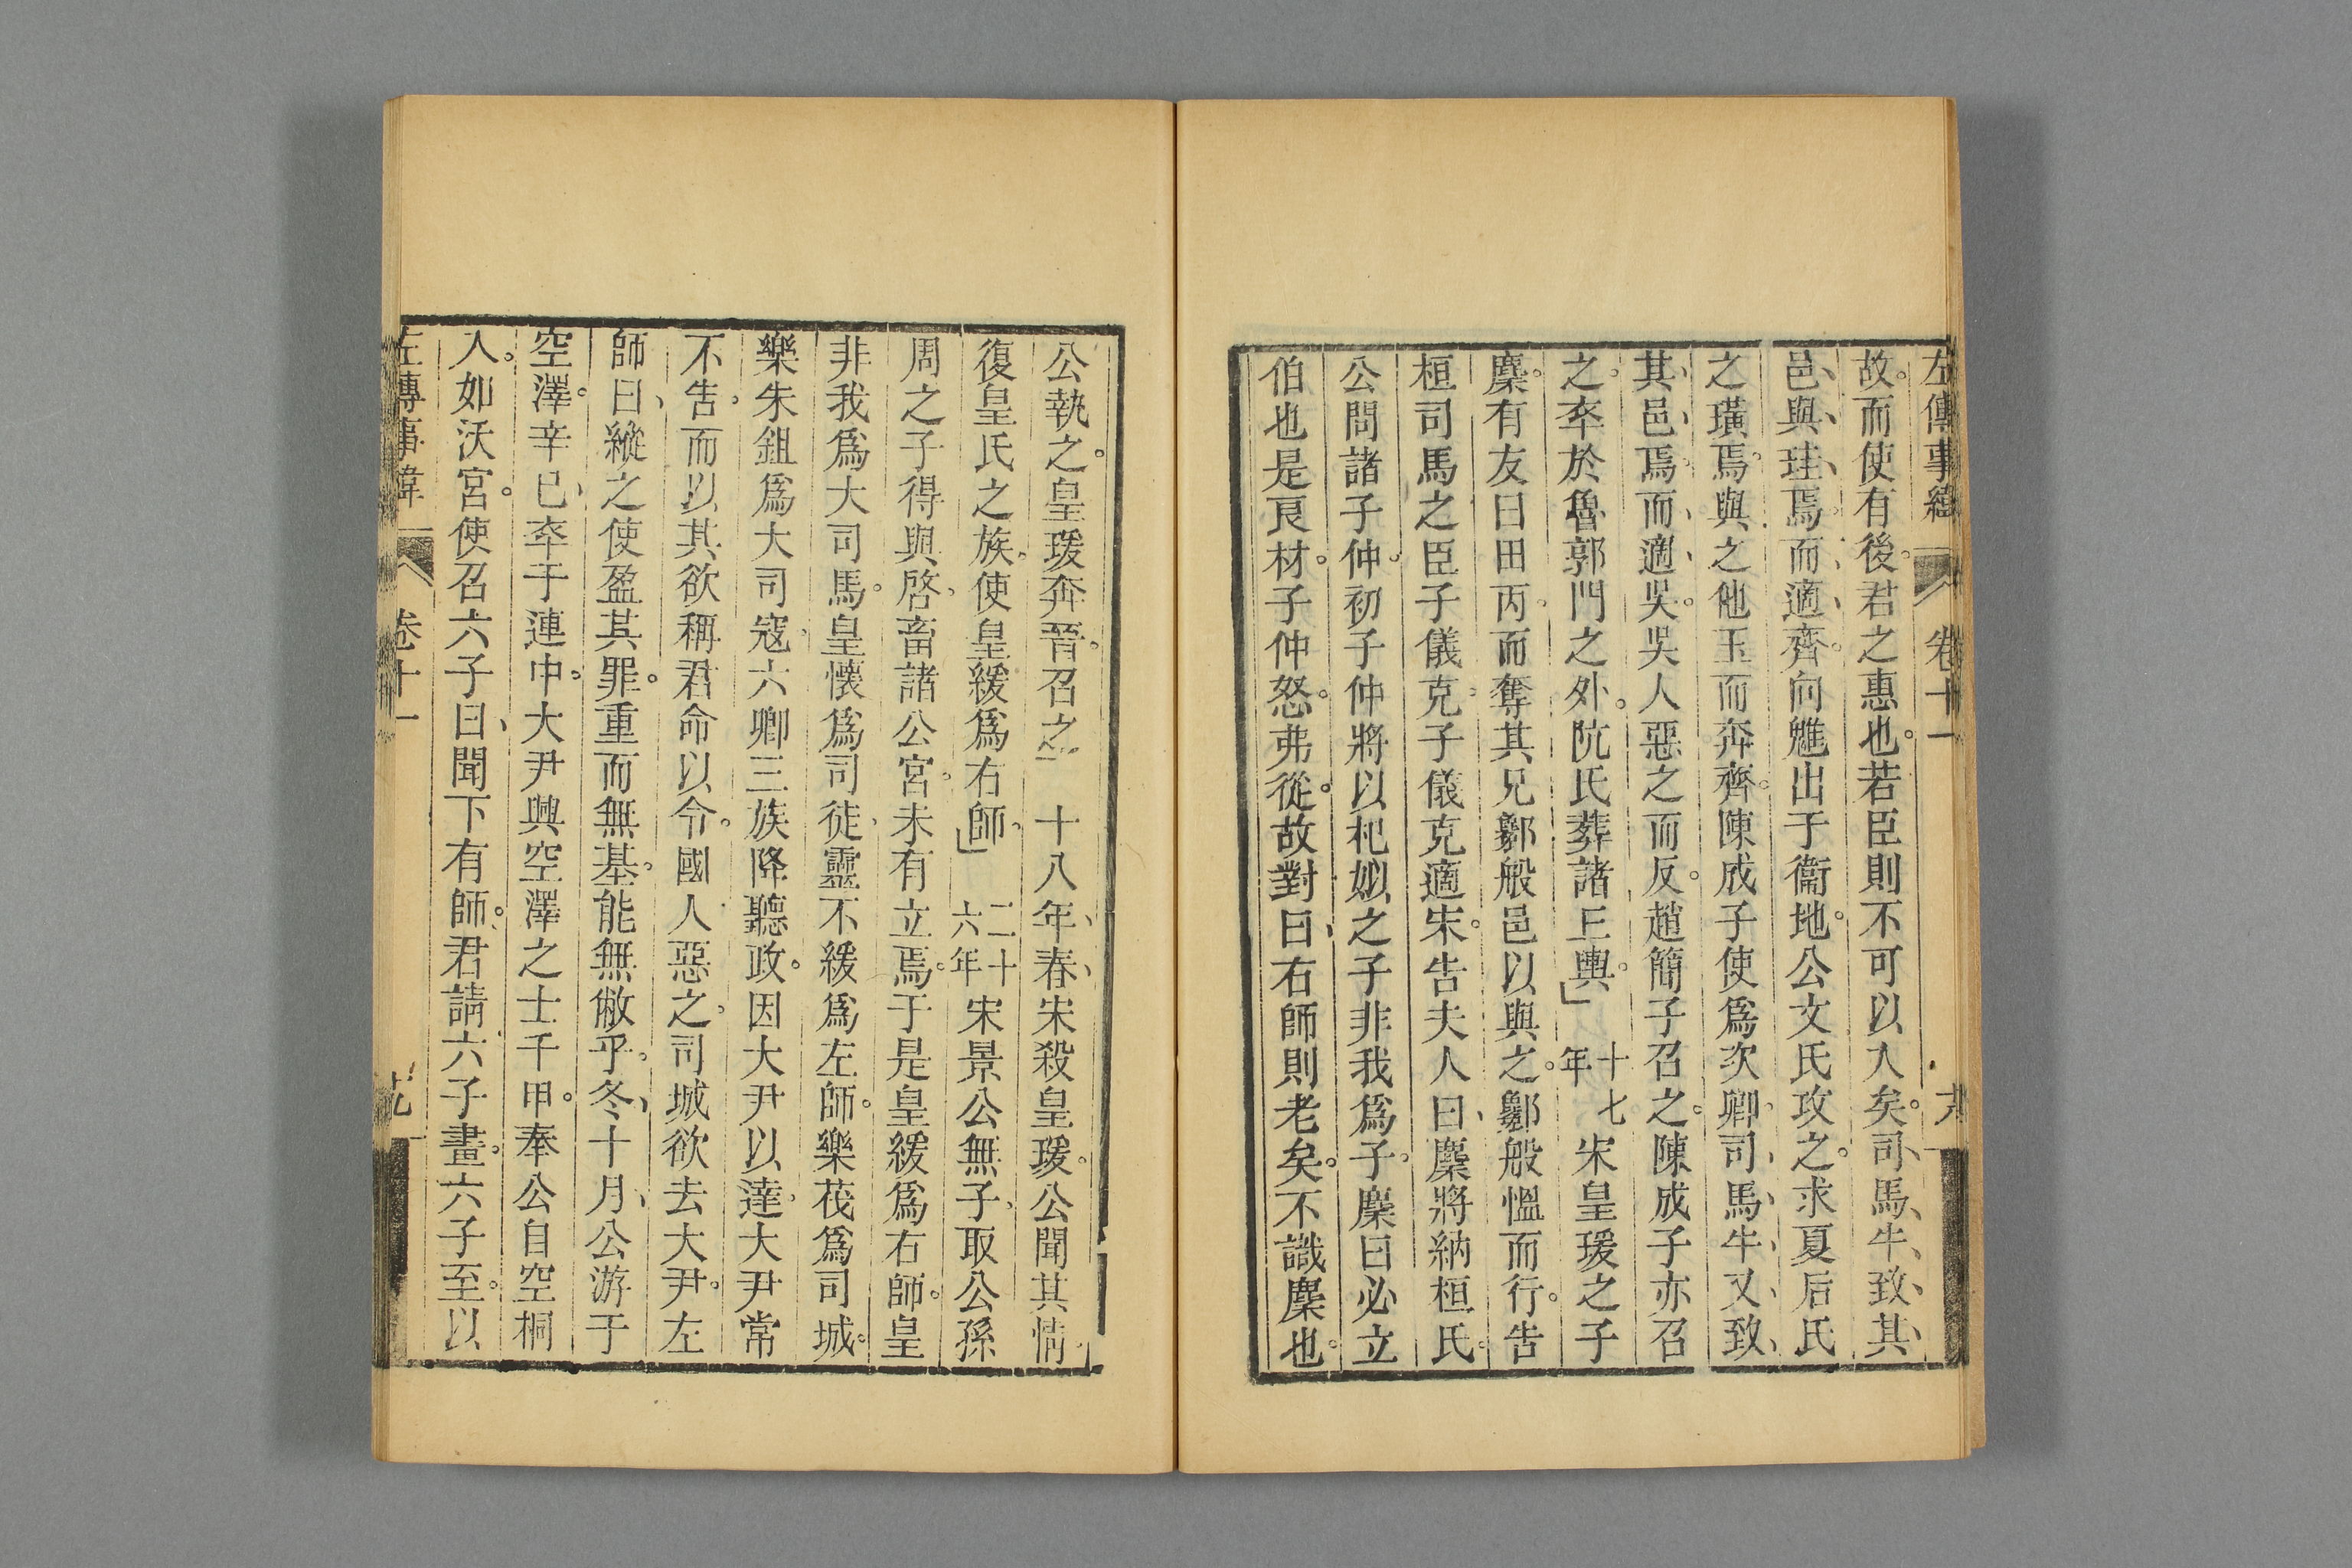 左傳事緯 卷十一
故而使有後君之惠也若臣則不可以入矣司馬牛致其
邑與珪焉而適齊向魋出于衞地公文氏攻之求夏后氏
之璜焉與之他玉而奔齊陳成子使爲次卿司馬牛又致
其邑焉而適吳吳人惡之而反趙簡子召之陳成子亦召
之卒於魯郭門之外阬氏葬諸丘輿」十七年宋皇瑗之子
麇有友曰田丙而奪其兄酁般邑以與之酁般慍而行告
桓司馬之臣子儀克子儀克適宋告夫人曰麇將納桓氏
公問諸子仲初子仲將以杞姒之子非我爲子麇曰必立
伯也是良材子仲怒弗從故對曰右師則老矣不識麇也
公執之皇瑗奔晉召之 十八年春宋殺皇瑗公聞其情
復皇氏之族使皇緩爲右師」二十六年宋景公無子取公孫
周之子得與啓畜諸公宮未有立焉于是皇緩爲右師皇
非我爲大司馬皇懷爲司徒靈不緩爲左師樂茷爲司城
樂朱鉏爲大司寇六卿三族降聽政因大尹以達大尹常
不吿而以其欲稱君命以令國人惡之司城欲去大尹左
師曰縱之使盈其罪重而無基能無敝乎冬十月公游于
空澤辛巳卒于連中大尹興空澤之士千甲奉公自空桐
入如沃宮使召六子曰聞下有師君請六子畫六子至以
左傳事緯 卷十一